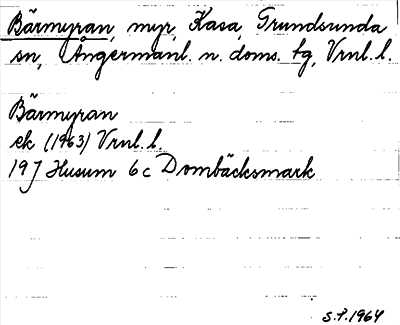 Bärmyran, myr, Kasa, Grundsunda
sn, Ångermanl. n. doms. tg, Vrnl. l.
Bärmyran
ek (1963) Vrnl. l.
19J Husum 6c Dombäcksmark
S.P. 1964